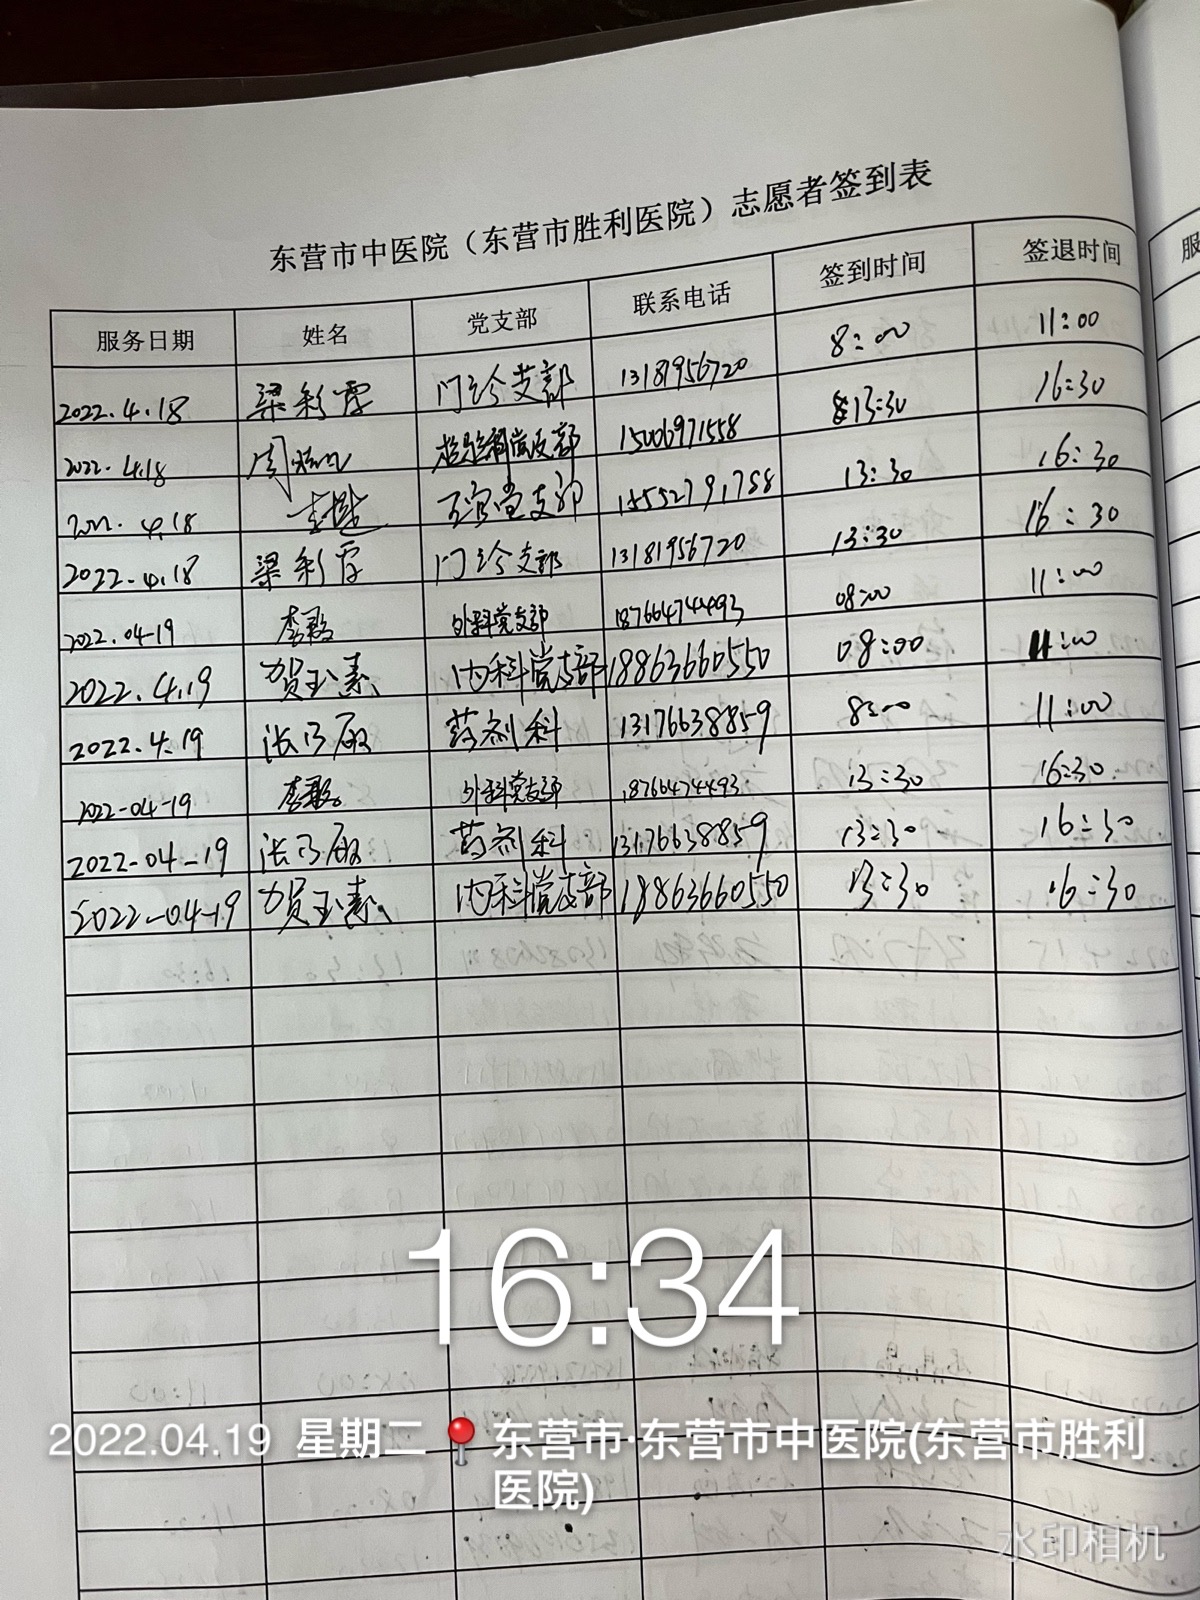 东营市中医院（东营市胜利医院）志愿者签到表
服务日期 姓名 党支部 联系电话 签到时间 签退时间
2022.4.18 梁彩霞 门诊支部 13181956720 8:00 11:00
2022.4.18 周 检验科党支部 15006971558 13:30 16:30
2022.4.18 党支部 15552791788 13:30 16:30
2022.4.18 梁彩霞 门诊支部 13181956720 13:30 16:30
2022.04-19 李 外科党支部 18766474493 08:00 11:00
2022.4.19 贺玉素 内科党支部 18863660550 08:00 11:00
2022.4.19 张乃 药剂科 13176638859 8:00 11:00
2022-04-19 李 外科党支部 18766474493 13:30 16:30
2022-04-19 张乃 药剂科 13176638859 13:30 16:30
2022-04-19 贺玉素 内科党支部 18863660550 13:30 16:30
服
16:34
2022.04.19 星期二 东营市·东营市中医院(东营市胜利
医院)
水印相机